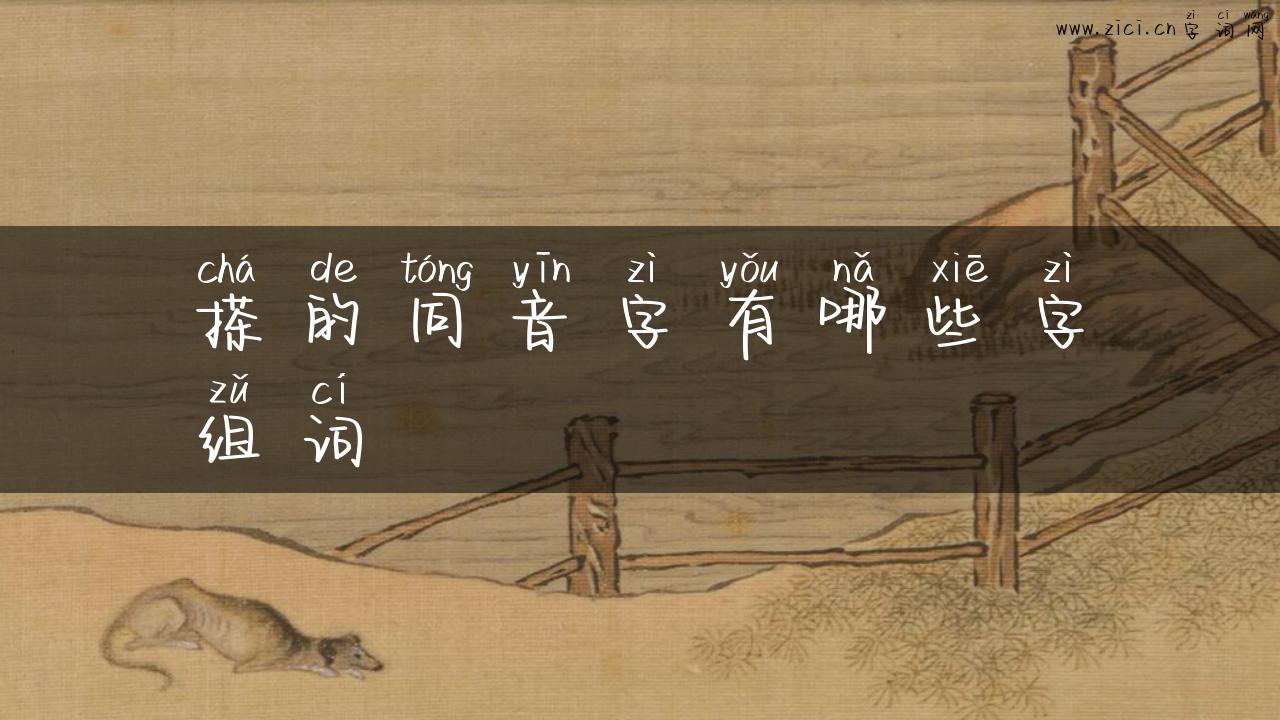 zì cí wǎng
www.zici.cn 字词网
chá de tóng yīn zì yǒu nǎ xiē zì
搽的同音字有哪些字
zǔ cí
组词